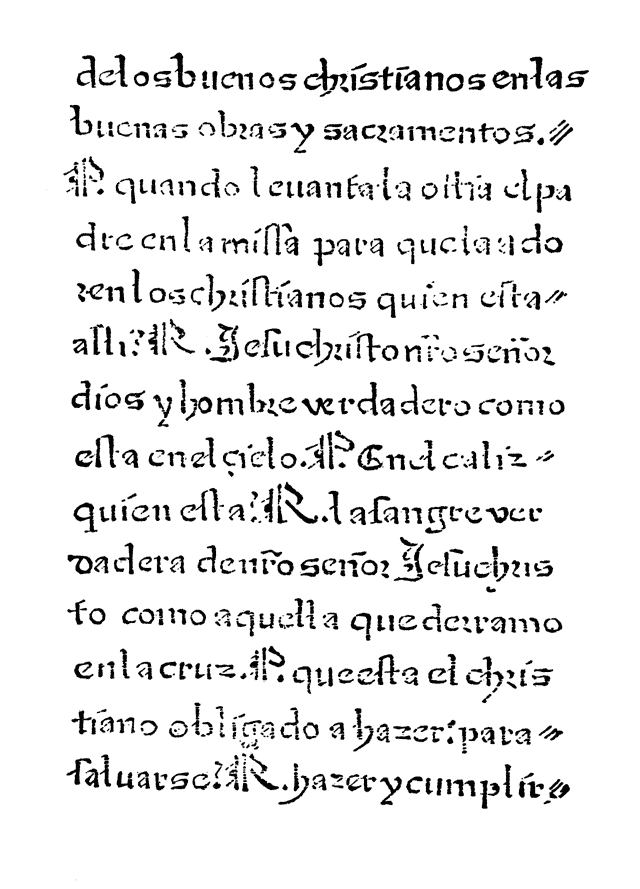 delos buenos christianos en las
buenas obras y sacramentos.//
P. quando leuanta la ostia el pa
dre en la missa para que la ado
ren los christianos quien esta//
alli? R. Jesuchristo nr̃o señor
dios y hombre verdadero como
esta en el cielo. P. En el caliz//
quien esta? R. la sangre ver
dadera de nr̃o señor Jesuchris
to como aquella que derramo
en la cruz. P. que esta el chris
tiano obligado a hazer: para//
saluarse? R. hazer y cumplir//